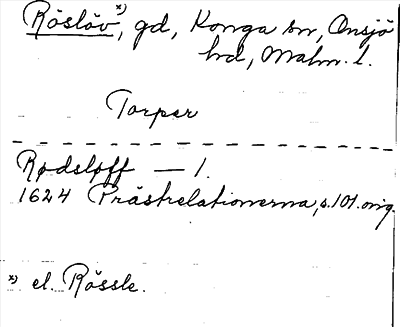 Röslöv *), gd, Konga sn, Onsjö
hd, Malm. l.
Torper
Rödsloff — 1.
1624 Prästrelationerna, s. 101. orig.
*) el. Rössle.